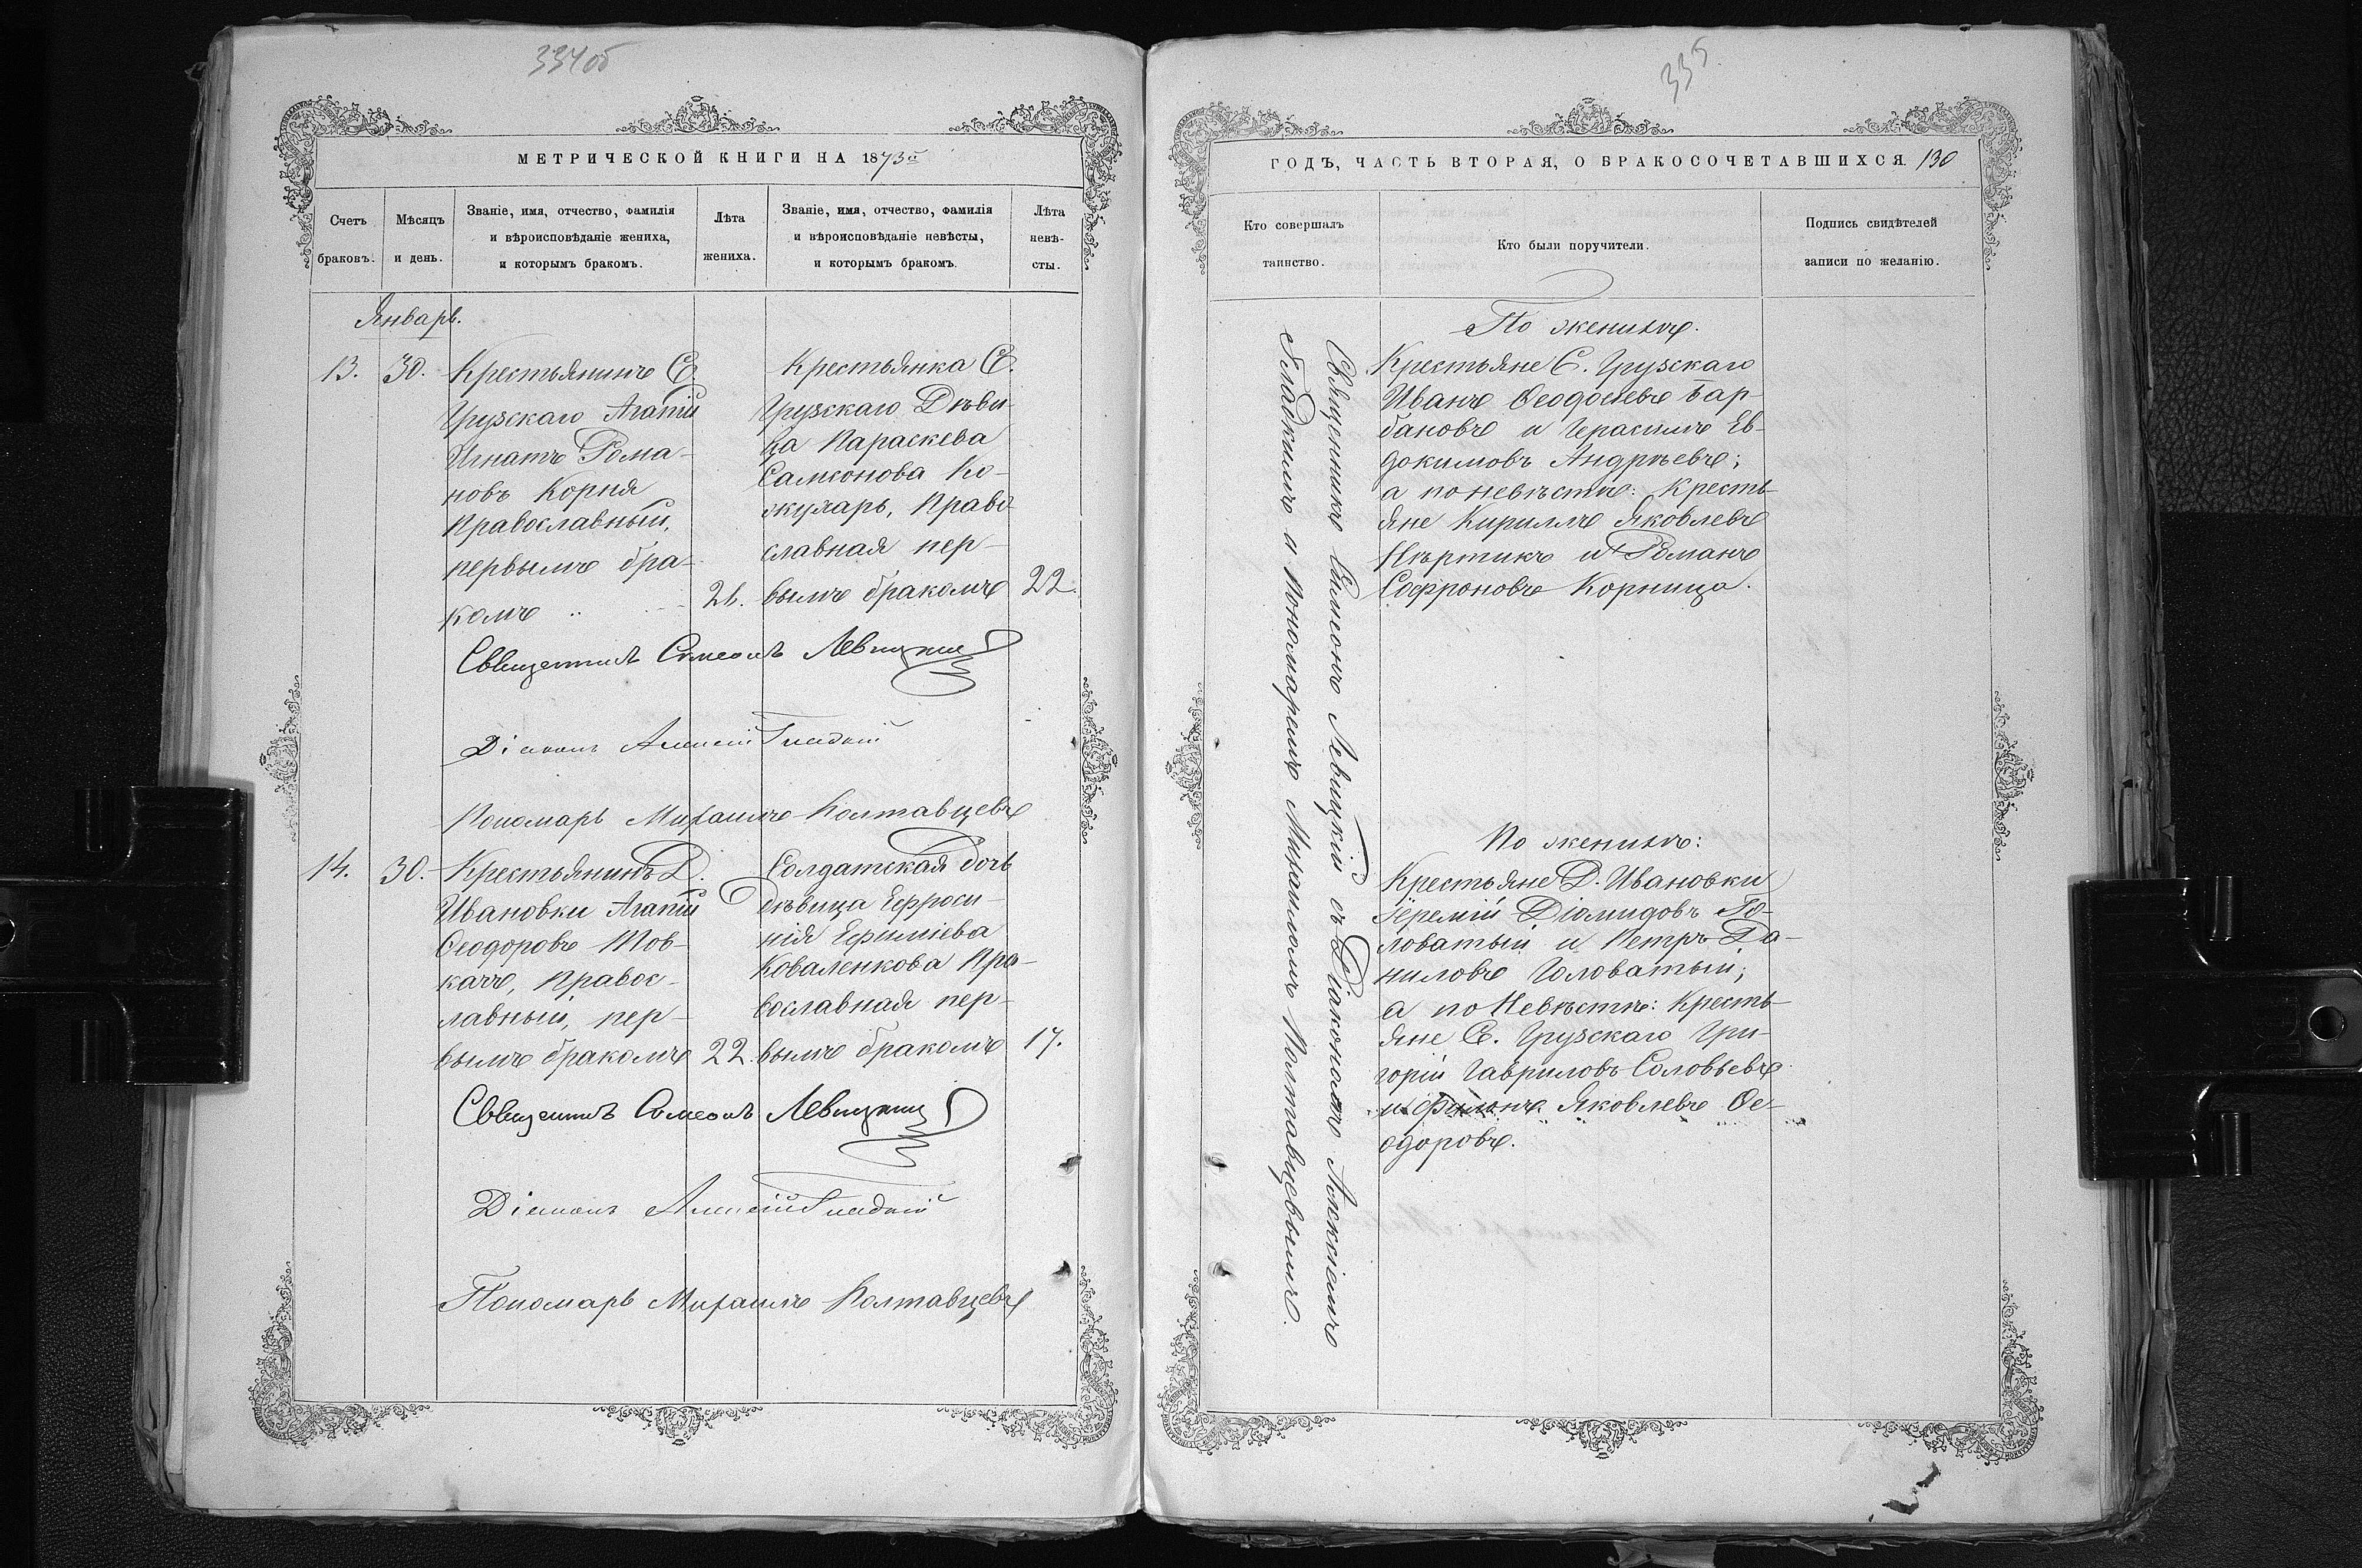 334об
МЕТРИЧЕСКОЙ КНИГИ НА 1873й
Счетъ браковъ.
Мѣсяцъ и день.
Званіе, имя, отчество, фамилія
и вѣроисповѣданіе жениха,
и которымъ бракомъ.
Лѣта
жениха.
Званіе, имя, отчество, фамилія
и вѣроисповѣданіе невѣсты,
и которымъ бракомъ.
Лѣта
невѣ-
сты.
Январь.
13. 30.
Крестьянинъ С.
Грузскаго Агапій
Игнатъ Рома-
новъ Корня
Православный,
первымъ бра-
комъ
Крестьянка С.
Грузскаго Дѣви-
ца Параскева
Самсонова Ко-
жухарь, Право-
славная пер-
вымъ бракомъ 22.
Священникъ Симеонъ Левицкій
Діаконъ Алексій Гладкій
Пономарь Михаилъ Полтавцевъ
14. 30.
Крестьянинъ Д.
Ивановки Агапій
Ѳеодоровъ Тов-
качъ, Правос-
лавный, пер-
вымъ бракомъ 22.
Солдатская дочь
дѣвица Ефроси-
нія Ефиміева
Коваленкова Пра-
вославная пер-
вымъ бракомъ 17.
Священникъ Симеонъ Левицкій
Діаконъ Алексій Гладкій
Пономарь Михаилъ Полтавцевъ
335
ГОДЪ, ЧАСТЬ ВТОРАЯ, О БРАКОСОЧЕТАВШИХСЯ. 130
Кто совершалъ
таинство.
Кто были поручители.
Подпись свидѣтелей
записи по желанію.
Священникъ Симеонъ Левицкій съ Діакономъ Алексіемъ
Гладкимъ и Пономаремъ Михаиломъ Полтавцевымъ.
По женихѣ.
Крестьяне С. Грузскаго
Иванъ Ѳеодосіевъ Бар-
бановъ и Герасимъ Ев-
докимовъ Андрѣевъ;
а по невѣстѣ: Кресть-
яне Кириллъ Яковлевъ
и Романъ
Софроновъ Корница.
По женихѣ:
Крестьяне Д. Ивановки
Іеремій Діомидовъ Го-
ловатый и Петръ Да-
ниловъ Головатый;
а по Невѣстѣ: Кресть-
яне С. Грузскаго Гри-
горій Гавриловъ Соловьевъ
и Яковлевъ Ѳе-
одоровъ.